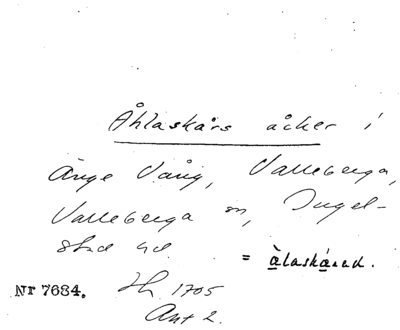 Åhlaskårs åcker i
Änge Vång, Valleberga,
Valleberga sn, Ingel-
stad hd.
= àlaskárad.
Nr 7684. Jb 1705
Ant 2.